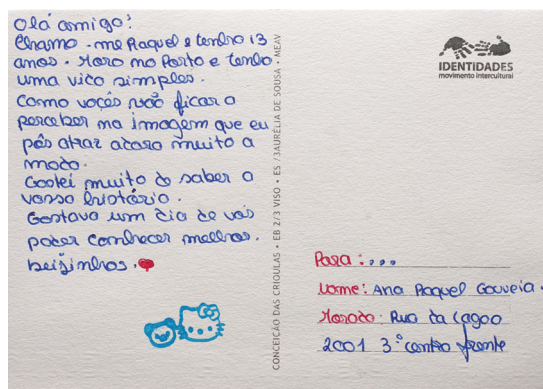 Olá amigo!
Chamo-me Raquel e tenho 13
anos. Moro no Porto e tenho
uma vida simples.
Como vocês vão ficar a
perceber na imagem que eu
pôs atraz adoro muito a
moda.
Gostei muito de saber a
vossa história.
Gostava um dia de vos
poder conhecer melhor.
beijinhos.
CONCEIÇÃO DAS CRIOULAS • EB 2/3 VISO • ES /3AURÉLIA DE SOUSA • MEAV
IDENTIDADES
movimento intercultural
Para:...
Nome: Ana Raquel Gouveia.
Morada: Rua da Lagoa
2001 3º centro frente